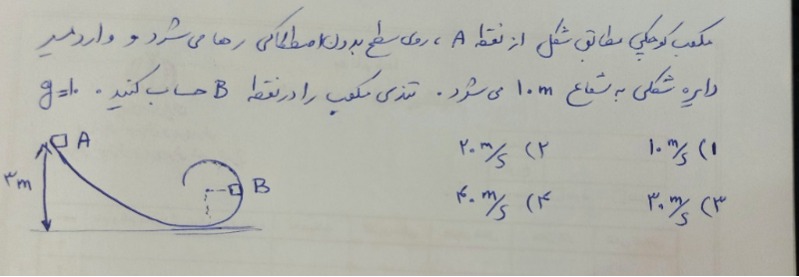 مکعب کوچکی مطابق شکل از نقطه A ، روی سطح بدون اصطکاکی رها می شود و وارد مسیر
دایره شکلی به شعاع ۱۰m می شود . تندی مکعب را در نقطه B حساب کنید . g=۱۰
۱) ۱۰ m/s ۲) ۲۰ m/s
۳) ۳۰ m/s ۴) ۴۰ m/s
A
۳m
B